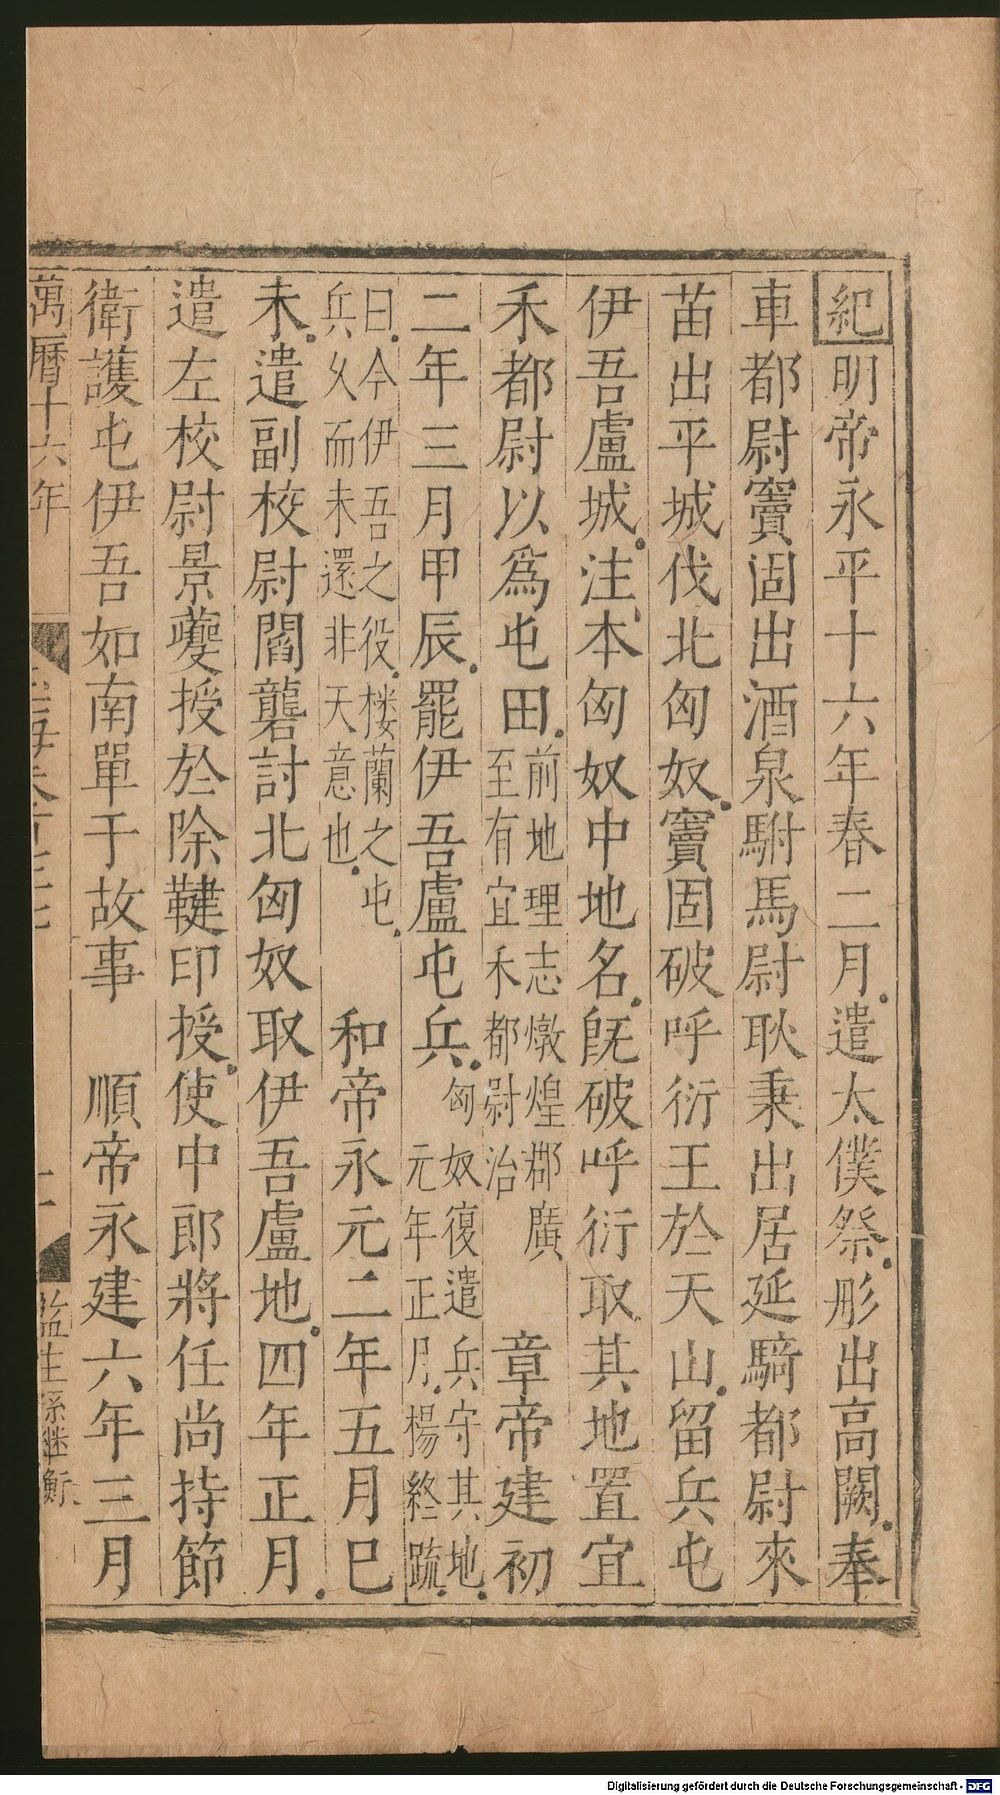 紀明帝永平十六年春二月遣太僕祭肜出高闕奉
車都尉竇固出酒泉駙馬尉耿秉出居延騎都尉來
苗出平城伐北匈奴竇固破呼衍王於天山留兵屯
伊吾盧城注本匈奴中地名既破呼衍取其地置宜
禾都尉以為屯田前地理志燉煌郡廣至有宜禾都尉治 章帝建初
二年三月甲辰罷伊吾盧屯兵匈奴復遣兵守其地元年正月楊終疏
曰今伊吾之役楼蘭之屯兵久而未還非天意也 和帝永元二年五月巳
未遣副校尉閻礱討北匈奴取伊吾盧地四年正月
遣左校尉景夔授於除鞬印授使中郎將任尚持節
衛護屯伊吾如南單于故事 順帝永建六年三月
萬曆十六年
監生孫継衡
Digitalisierung gefördert durch die Deutsche Forschungsgemeinschaft - DFG